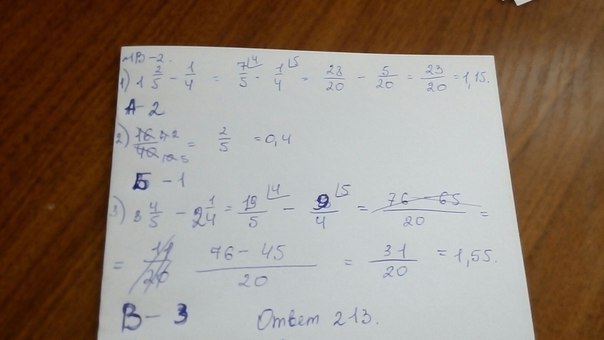 1B-2.
1) 1 2/5 - 1/4 = 7/5 - 1/4 = 28/20 - 5/20 = 23/20 = 1,15.
А-2
2) 16/40 = 2/5 = 0,4
Б-1
3) 3 4/5 - 2 1/4 = 19/5 - 9/4 = 76-65/20 =
= 11/20 76-45/20 = 31/20 = 1,55.
В-3 Ответ 213.